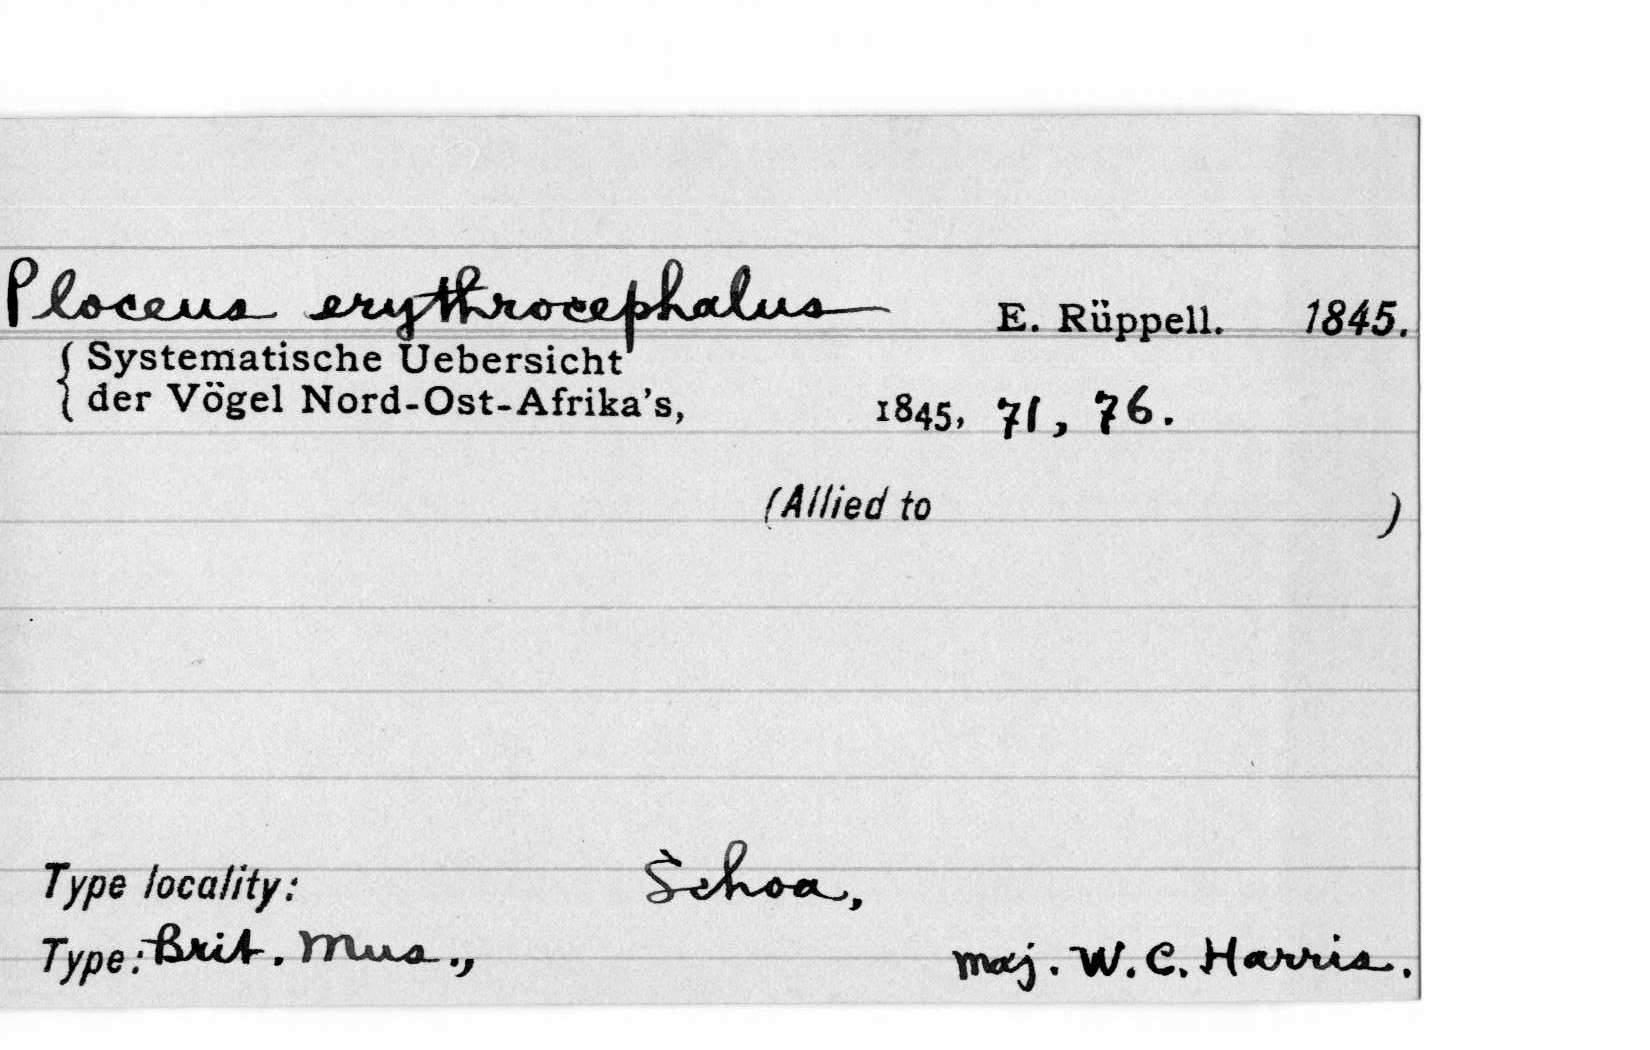 Ploceus erythrocephalus E. Rüppell. 1845.
{ Systematische Uebersicht
{ der Vögel Nord-Ost-Afrika's, 1845, 71, 76.
(Allied to )
Type locality: Schoa,
Type: Brit. Mus., Maj. W. C. Harris.